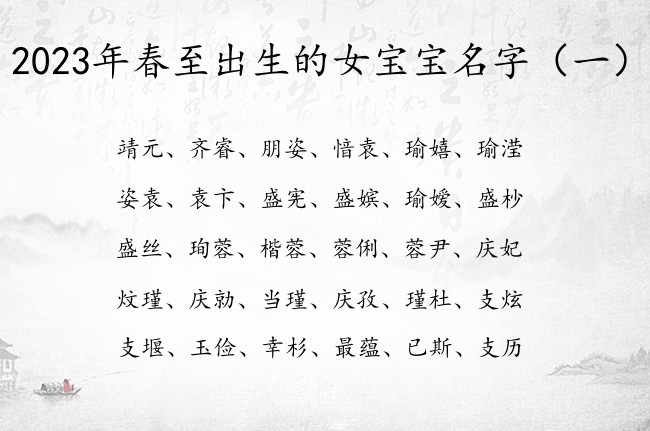 2023年春至出生的女宝宝名字（一）
靖元、齐睿、朋姿、愔袁、瑜嬉、瑜滢
姿袁、袁卞、盛宪、盛嫔、瑜嫒、盛杪
盛丝、珣蓉、楷蓉、蓉俐、蓉尹、庆妃
炆瑾、庆勍、当瑾、庆孜、瑾杜、支炫
支堰、玉俭、幸杉、最蕴、已斯、支历